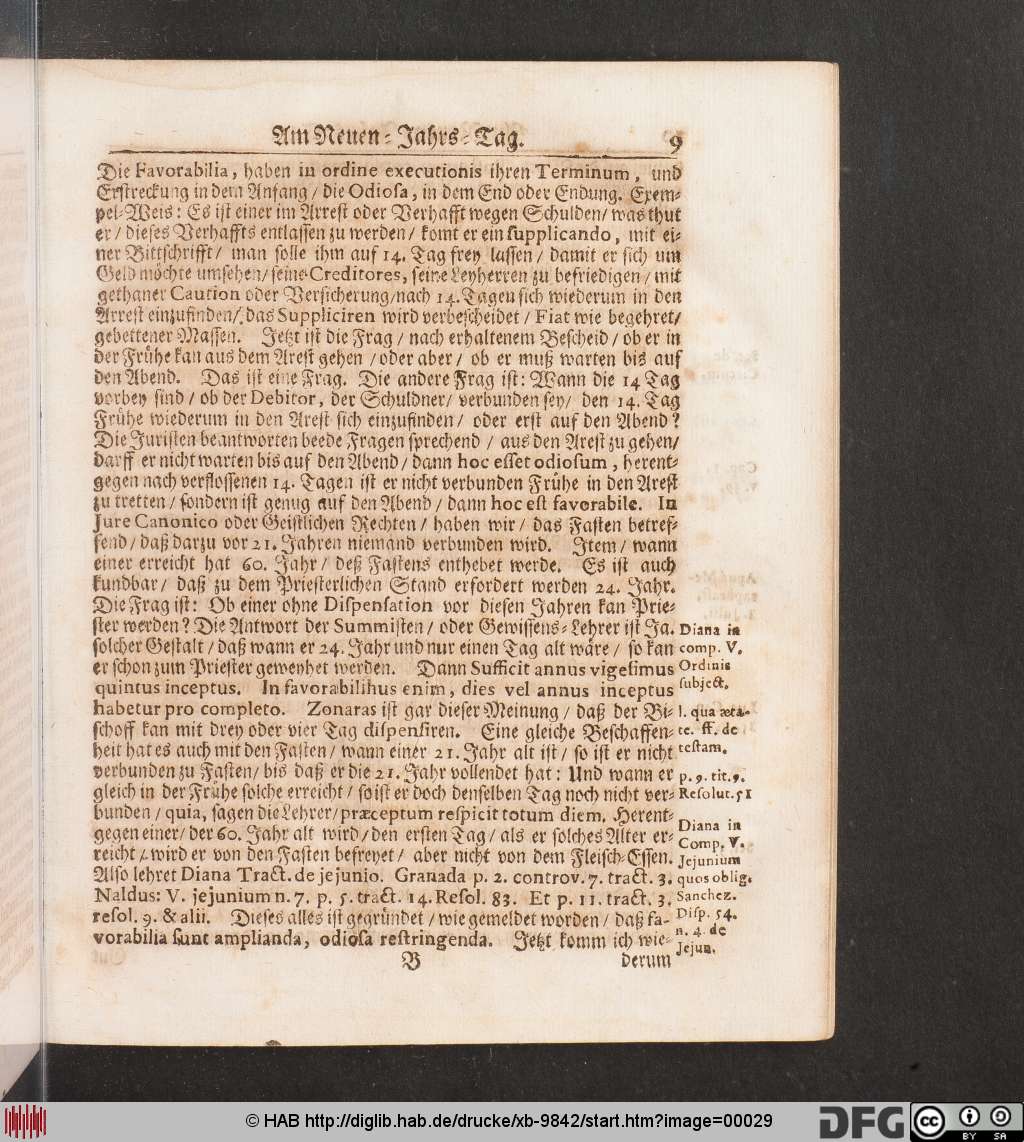 Am Neuen-Jahrs-Tag. 9
Die Favorabilia, haben in ordine executionis ihren Terminum, und
Erstreckung in dem Anfang / die Odiosa, in dem End oder Endung. Exem-
pel-Weis: Es ist einer im Arrest oder Verhafft wegen Schulden / was thut
er / dieses Verhaffts entlassen zu werden / komt er ein supplicando, mit ei-
ner Bittschrifft / man solle ihm auf 14. Tag frey lassen / damit er sich um
Geld möchte umsehen / seine Creditores, seine Leyherren zu befriedigen / mit
gethaner Caution oder Versicherung / nach 14. Tagen sich wiederum in den
Arrest einzufinden / das Suppliciren wird verbescheidet / Fiat wie begehret /
gebettener Massen. Jetzt ist die Frag / nach erhaltenem Bescheid / ob er in
der Frühe kan aus dem Arest gehen / oder aber / ob er muß warten bis auf
den Abend. Das ist eine Frag. Die andere Frag ist: Wann die 14 Tag
vorbey sind / ob der Debitor, der Schuldner / verbunden sey / den 14. Tag
Frühe wiederum in den Arest sich einzufinden / oder erst auf den Abend?
Die Juristen beantworten beede Fragen sprechend / aus den Arest zu gehen /
darff er nicht warten bis auf den Abend / dann hoc esset odiosum, herent-
gegen nach verflossenen 14. Tagen ist er nicht verbunden Frühe in den Arest
zu tretten / sondern ist genug auf den Abend / dann hoc est favorabile. In
Jure Canonico oder Geistlichen Rechten / haben wir / das Fasten betref-
fend / daß darzu vor 21. Jahren niemand verbunden wird. Item / wann
einer erreicht hat 60. Jahr / deß Fastens enthebet werde. Es ist auch
kundbar / daß zu dem Priesterlichen Stand erfordert werden 24. Jahr.
Die Frag ist: Ob einer ohne Dispensation vor diesen Jahren kan Prie-
ster werden? Die Antwort der Summisten / oder Gewissens-Lehrer ist Ja.
solcher Gestalt / daß wann er 24. Jahr und nur einen Tag alt wäre / so kan
er schon zum Priester geweyhet werden. Dann Sufficit annus vigesimus
quintus inceptus. In favorabilibus enim, dies vel annus inceptus
habetur pro completo. Zonaras ist gar dieser Meinung / daß der Bi-
schoff kan mit drey oder vier Tag dispensiren. Eine gleiche Beschaffen-
heit hat es auch mit den Fasten / wann einer 21. Jahr alt ist / so ist er nicht
verbunden zu Fasten / bis daß er die 21. Jahr vollendet hat: Und wann er
gleich in der Frühe solche erreicht / so ist er doch denselben Tag noch nicht ver-
bunden / quia, sagen die Lehrer / præceptum respicit totum diem. Herent-
gegen einer / der 60. Jahr alt wird / den ersten Tag / als er solches Alter er-
reicht / wird er von den Fasten befreyet / aber nicht von dem Fleisch-Essen.
Also lehret Diana Tract. de jejunio. Granada p. 2. controv. 7. tract. 3.
Naldus: V. jejunium n. 7. p. 5. tract. 14. Resol. 83. Et p. 11. tract. 3.
resol. 9. & alii. Dieses alles ist gegründet / wie gemeldet worden / daß fa-
vorabilia sunt amplianda, odiosa restringenda. Jetzt komm ich wie-
B derum
Diana in
comp. V.
Ordinis
subject.
l. qua æta-
te. ff. de
testam.
p. 9. tit. 9.
Resolut. 51
Diana in
Comp. V.
Jejunium
quos oblig.
Sanchez.
Disp. 54.
n. 4. de
Jejun.
© HAB http://diglib.hab.de/drucke/xb-9842/start.htm?image=00029
DFG
cc
BY SA